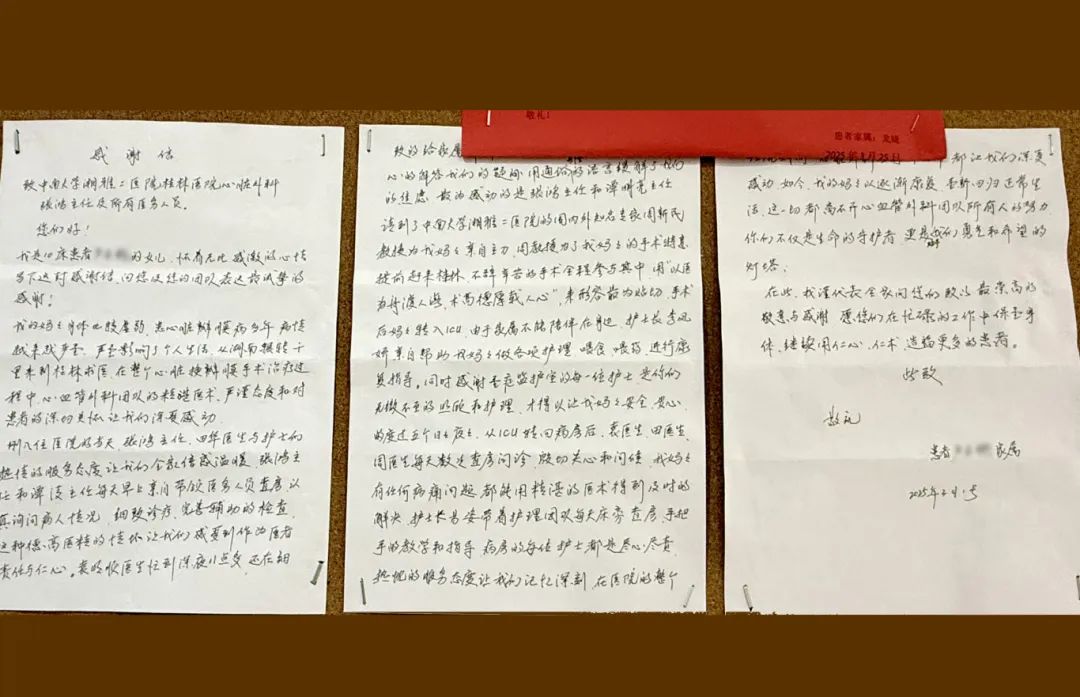 感谢信
致中南大学湘雅二医院桂林医院心脏外科
张鸿主任及所有医务人员。
您们好！
我是10床患者 的女儿，怀着无比感激的心情
写下这封感谢信，向您及您的团队表达最诚挚的
感谢！
我的妈妈身体比较虚弱，患心脏瓣膜病多年 病情
越来越严重，严重影响了个人生活，从湖南辗转千
里来到桂林求医，在整个心脏换瓣膜手术治疗过
程中，心血管外科团队的精湛医术，严谨态度和对
患者的深切关怀让我们深受感动
刚入住医院的当天，张鸿主任、 医生与护士们
热情的服务态度让我们全家倍感温暖，张鸿主
任和谭 主任每天早上亲自带领医务人员查房认
真询问病人情况，细致诊疗，完善辅助的检查，
这种德高医精的情怀让我们感受到作为医者
责任与仁心。袁 医生忙到深夜11点多 还在细
致的给家属
心的解答我们的疑问，用通俗的语言缓解了我们
的焦虑 最为感动的是张鸿主任和谭 主任
请到了中南大学湘雅二医院的国内外知名专家周新民
教授为我妈妈亲自主刀，周教授为了我妈妈的手术特意
提前赶来桂林，不辞辛苦的手术全程参与其中 用“以医
为舟渡人涯，术高德厚载人心”，来形容最为贴切，手术
后妈妈转入ICU，由于家属不能陪伴在身边，护士长李凤
娇亲自帮助我妈妈做各项护理 喂食、喂药，进行康
复指导。同时感谢重症监护室的每一位护士，是你们
无微不至的照顾和护理，才得以让我妈妈安全、安心
的度过五个日日夜夜，从ICU转回病房后，袁医生、田医生、
周医生每天数次查房问诊，殷切关心和问候，我妈妈
有任何病痛问题 都能用精湛的医术得到及时的
解决，护士长易安带着护理团队每天床旁查房，手把
手的教学和指导 病房的每位护士都是尽心尽责，
热忱的服务态度让我们记忆深刻，在医院的整个
敬礼！
患者家属：
都让我们深受
感动，如今，我的妈妈以逐渐康复 重新回归正常生
活，这一切都离不开心血管外科团队所有人的努力，
你们不仅是生命的守护者 更是我们勇气和希望的
灯塔。
在此，我谨代表全家向您们致以最崇高的
敬意与感谢 愿你们在忙碌的工作中保重身
体，继续用仁心、仁术，造福更多的患者。
此致
敬礼
患者 家属